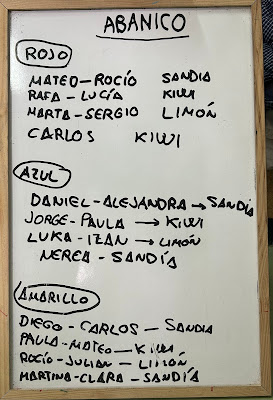 ABANICO
ROJO
MATEO-ROCÍO SANDIA
RAFA-LUCÍA KIWI
MARTA-SERGIO LIMÓN
CARLOS KIWI
AZUL
DANIEL-ALEJANDRA → SANDÍA
JORGE-PAULA → KIWI
LUKA-IZAN → LIMÓN
NEREA-SANDÍA
AMARILLO
DIEGO-CARLOS-SANDIA
PAULA-MATEO-KIWI
ROCÍO-JULIAN-LIMÓN
MARTINA-CLARA-SANDÍA